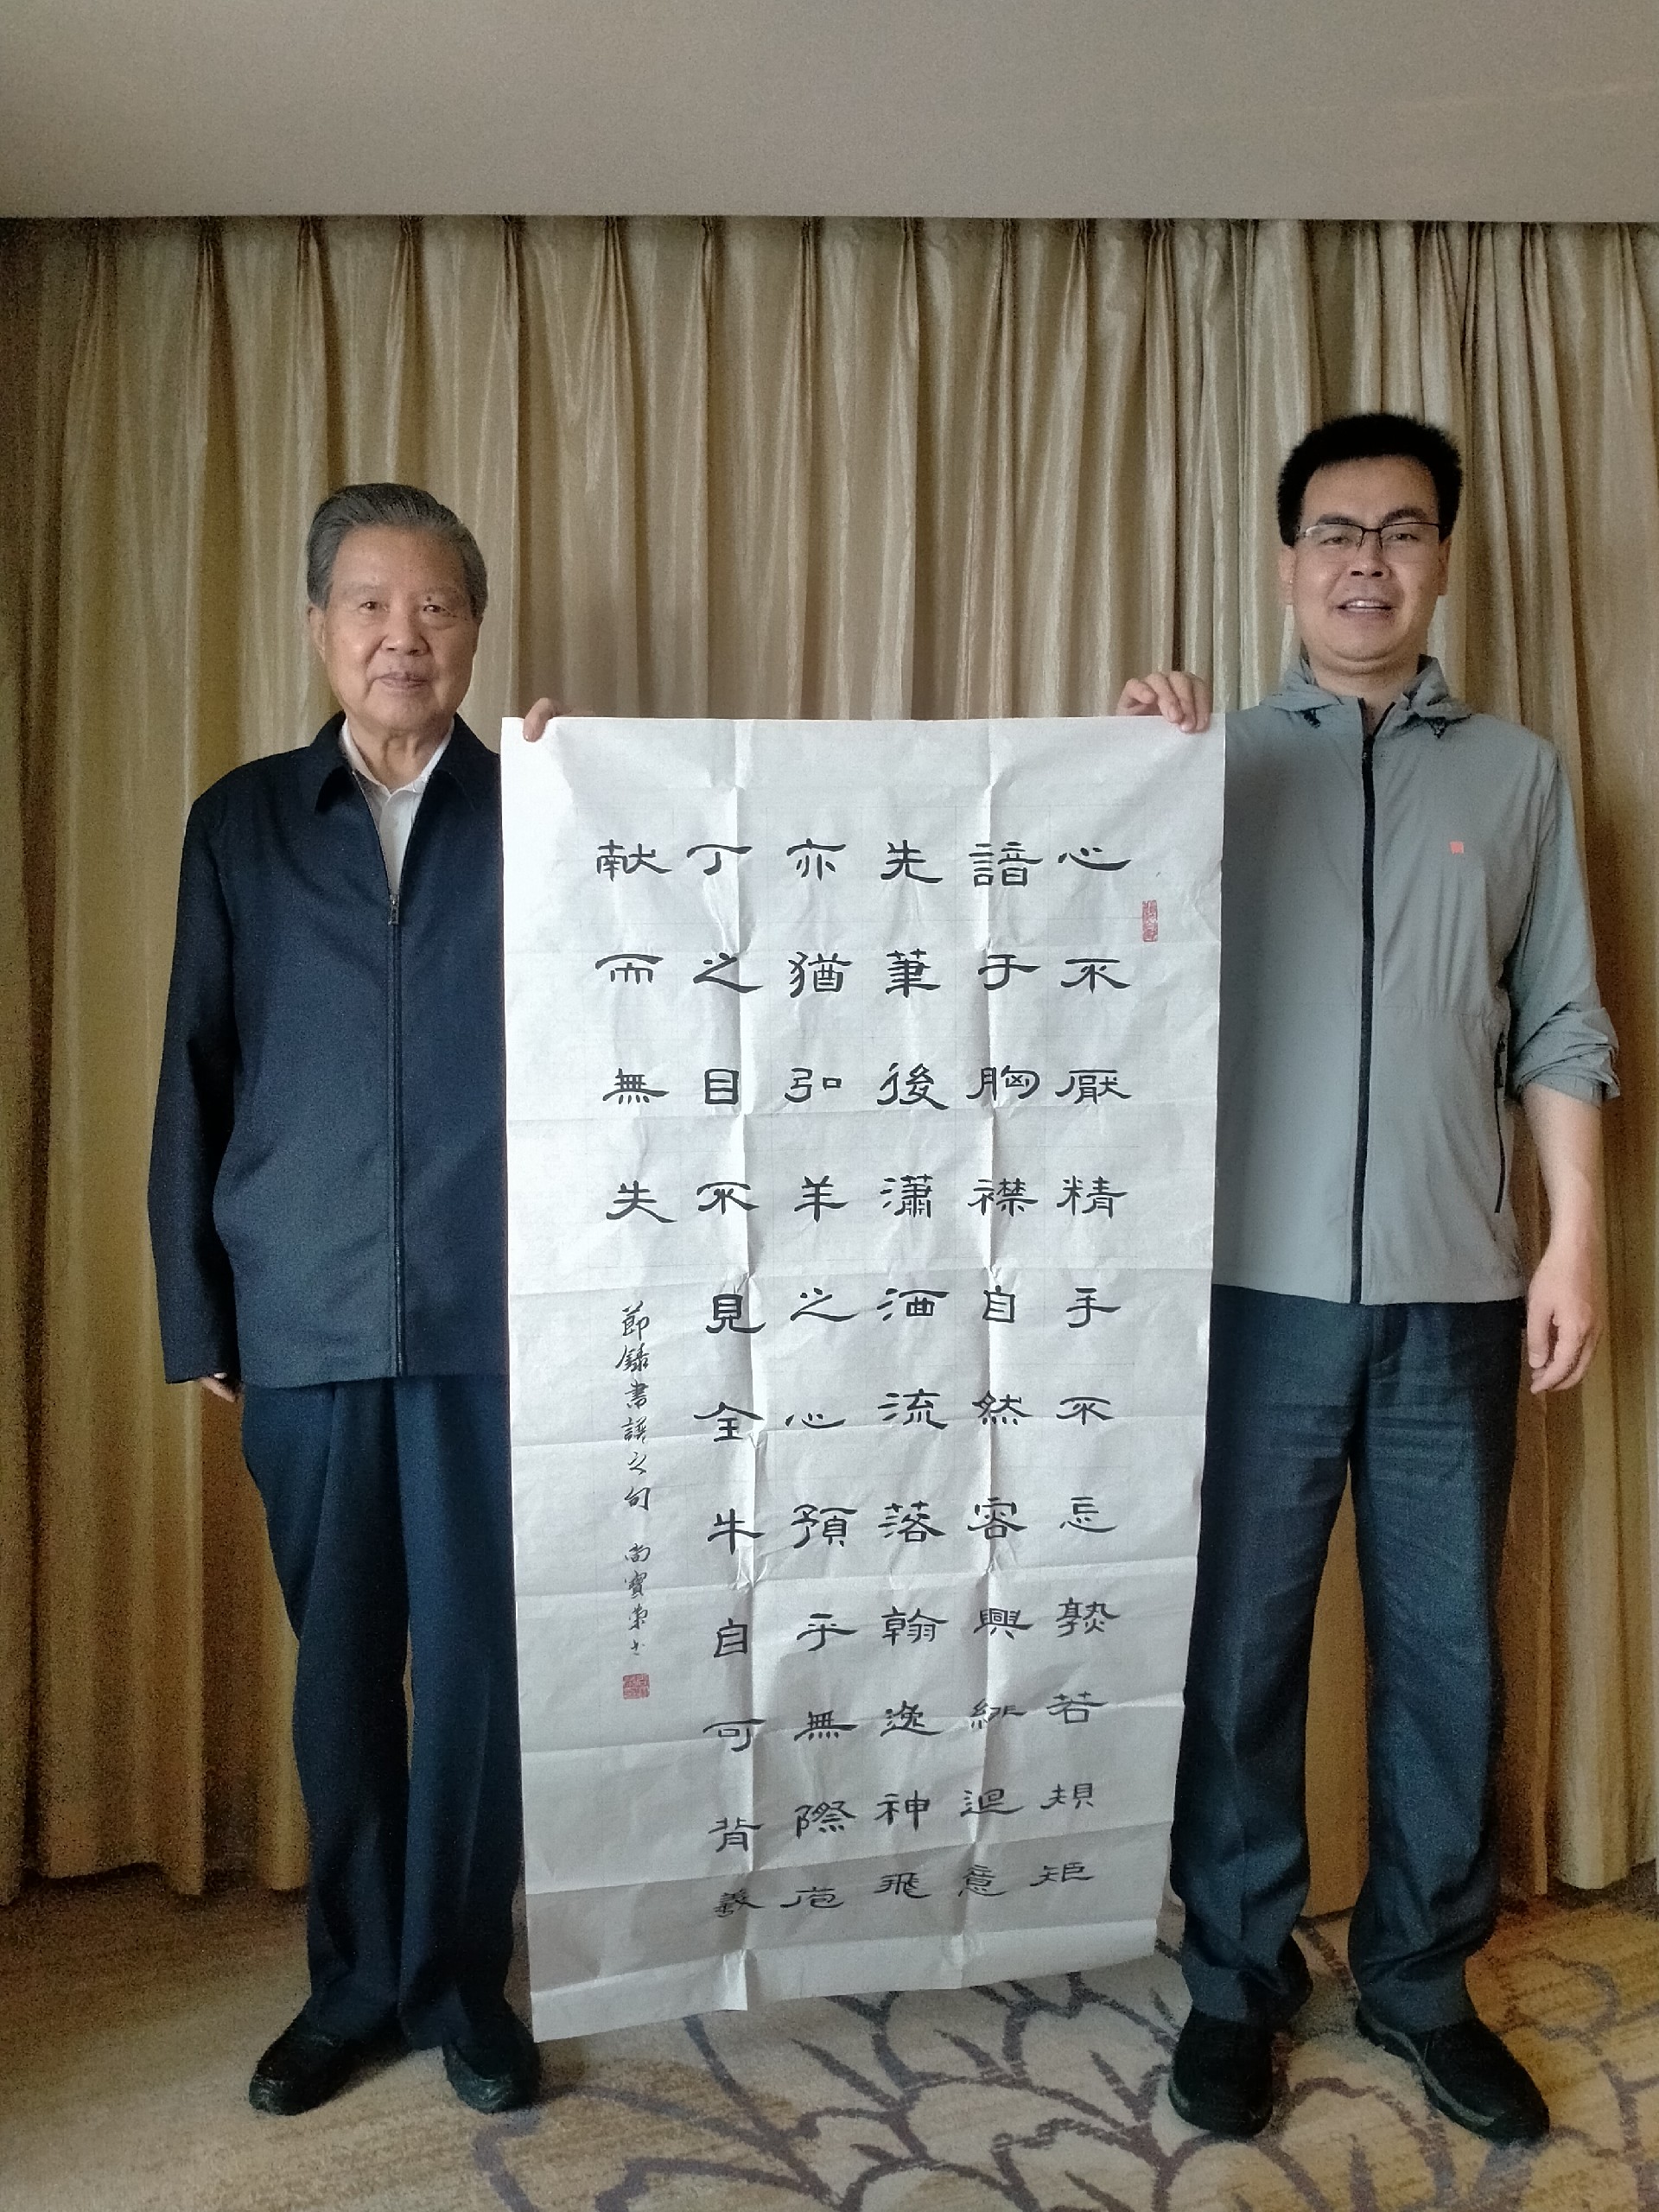 心不厭精手不忘熟若規矩
諳于胸襟自然容興緋迴意
先筆後瀟洒流落翰逸神飛
亦猶弘羊之心預乎無際庖
丁之目不見全牛自可背羲
献而無失
節録書譜之句 尚寶東书